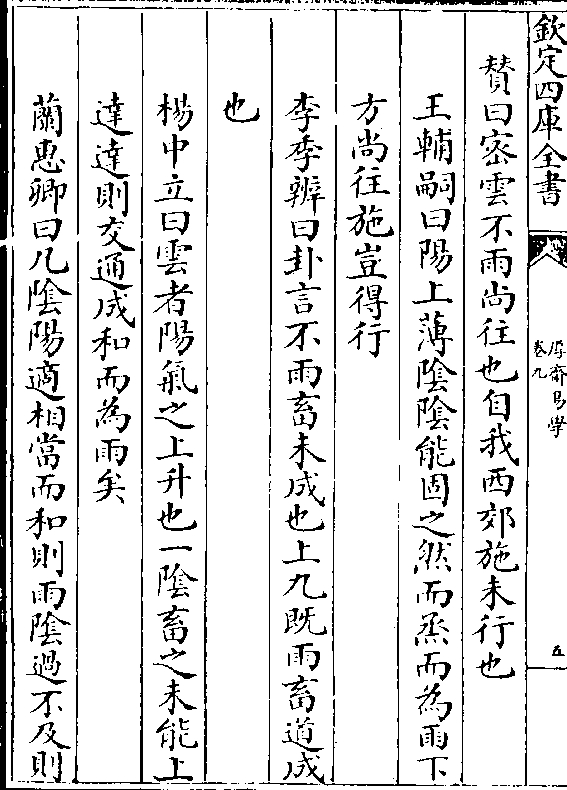 欽定四庫全書
厚齋易學
卷九
五
贊曰宻雲不雨尚往也自我西郊施未行也
王輔嗣曰陽上薄陰陰能固之然而烝而為雨下
方尚往施豈得行
李季辨曰卦言不雨畜未成也上九既雨畜道成
也
楊中立曰雲者陽氣之上升也一陰畜之未能上
達達則交通成和而為雨矣
蘭惠卿曰凡陰陽適相當而和則雨陰過不及則